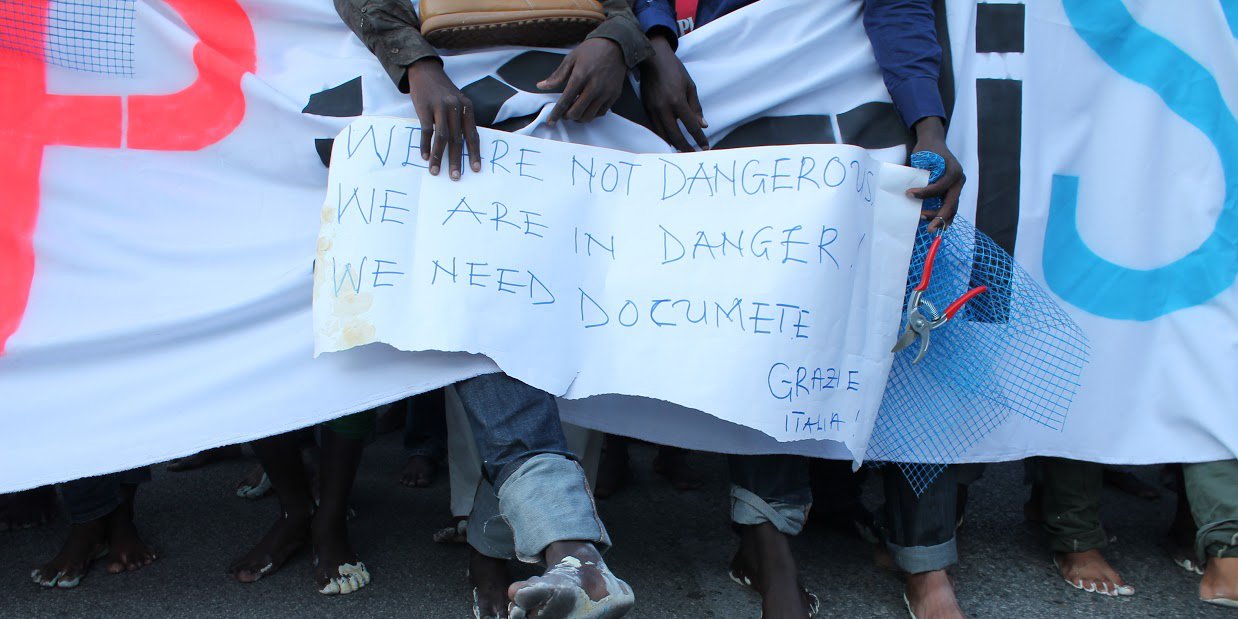 WE ARE NOT DANGEROUS.
WE ARE IN DANGER!
WE NEED DOCUMETE
GRAZIE
ITALIA!